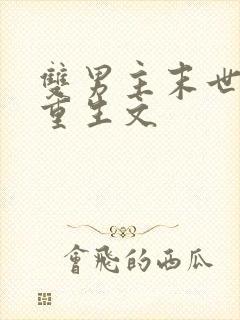 雙男主末世
重生文
會飛的西瓜